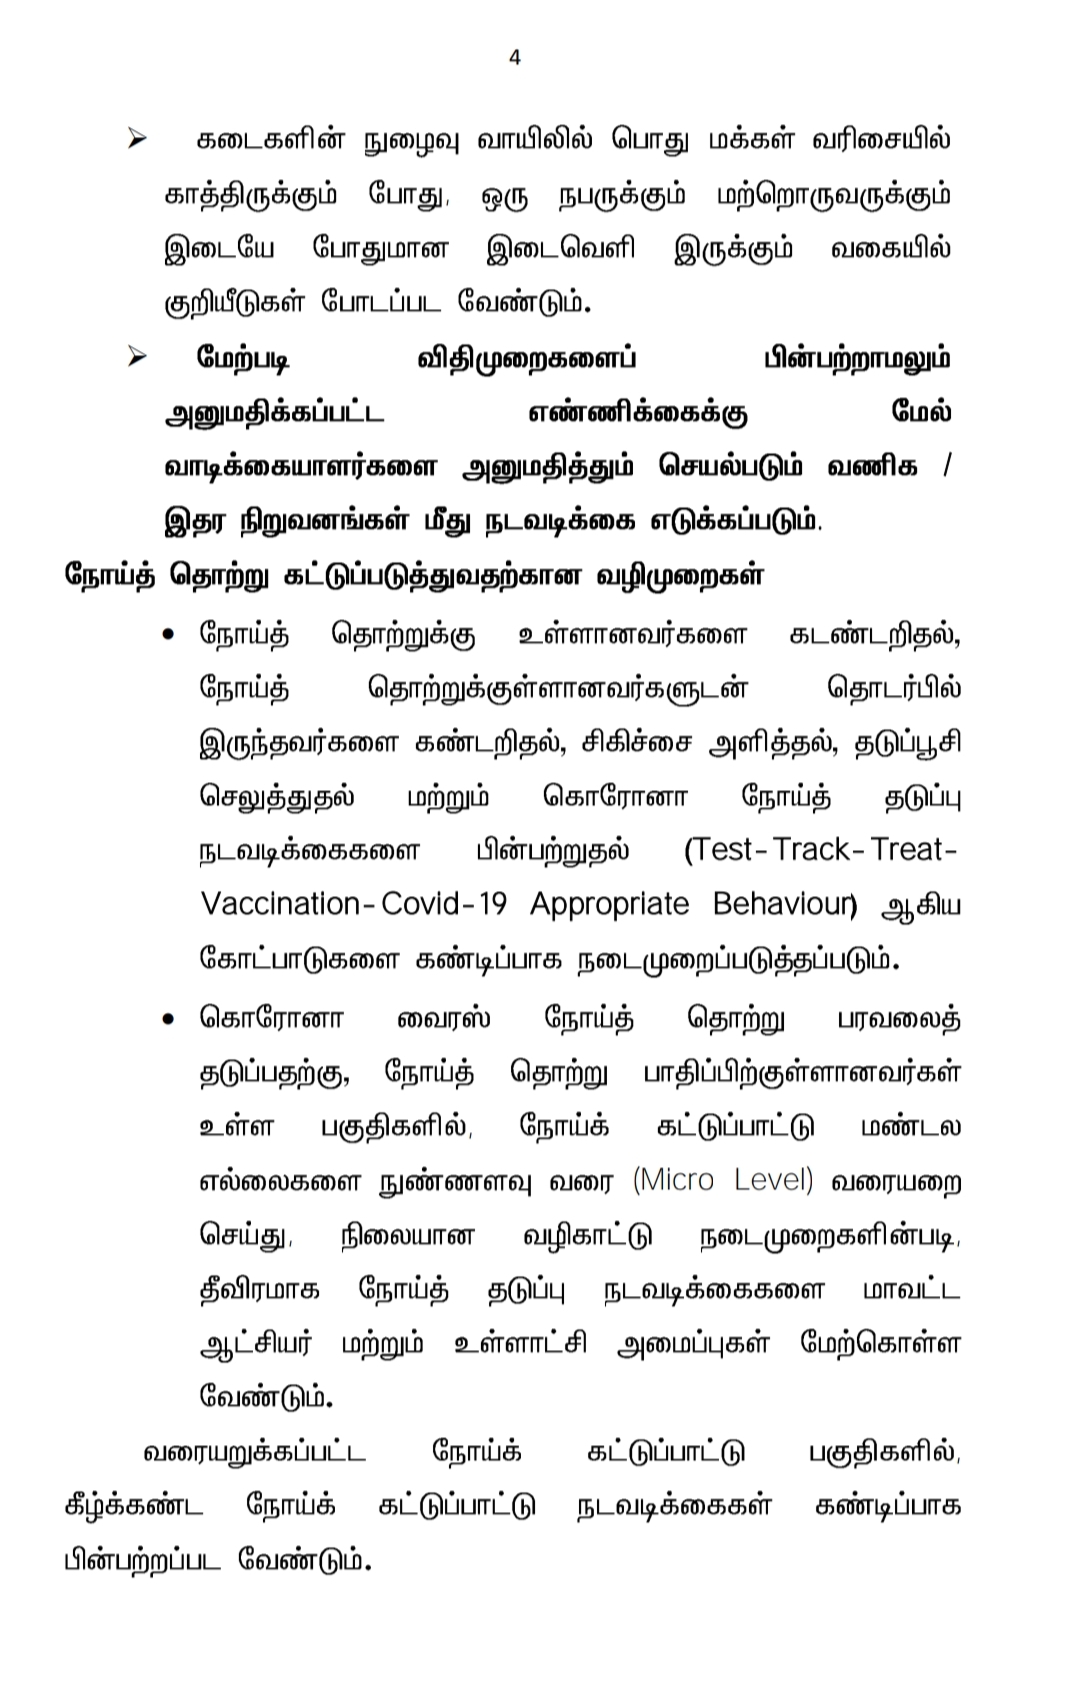 4
➢ கடைகளின் நுழைவு வாயிலில் பொது மக்கள் வரிசையில்
காத்திருக்கும் போது, ஒரு நபருக்கும் மற்றொருவருக்கும்
இடையே போதுமான இடைவெளி இருக்கும் வகையில்
குறியீடுகள் போடப்பட வேண்டும்.
➢ மேற்படி விதிமுறைகளைப் பின்பற்றாமலும்
அனுமதிக்கப்பட்ட எண்ணிக்கைக்கு மேல்
வாடிக்கையாளர்களை அனுமதித்தும் செயல்படும் வணிக /
இதர நிறுவனங்கள் மீது நடவடிக்கை எடுக்கப்படும்.
நோய்த் தொற்று கட்டுப்படுத்துவதற்கான வழிமுறைகள்
• நோய்த் தொற்றுக்கு உள்ளானவர்களை கடண்டறிதல்,
நோய்த் தொற்றுக்குள்ளானவர்களுடன் தொடர்பில்
இருந்தவர்களை கண்டறிதல், சிகிச்சை அளித்தல், தடுப்பூசி
செலுத்துதல் மற்றும் கொரோனா நோய்த் தடுப்பு
நடவடிக்கைகளை பின்பற்றுதல் (Test-Track-Treat-
Vaccination-Covid-19 Appropriate Behaviour) ஆகிய
கோட்பாடுகளை கண்டிப்பாக நடைமுறைப்படுத்தப்படும்.
• கொரோனா வைரஸ் நோய்த் தொற்று பரவலைத்
தடுப்பதற்கு, நோய்த் தொற்று பாதிப்பிற்குள்ளானவர்கள்
உள்ள பகுதிகளில், நோய்க் கட்டுப்பாட்டு மண்டல
எல்லைகளை நுண்ணளவு வரை (Micro Level) வரையறை
செய்து, நிலையான வழிகாட்டு நடைமுறைகளின்படி,
தீவிரமாக நோய்த் தடுப்பு நடவடிக்கைகளை மாவட்ட
ஆட்சியர் மற்றும் உள்ளாட்சி அமைப்புகள் மேற்கொள்ள
வேண்டும்.
வரையறுக்கப்பட்ட நோய்க் கட்டுப்பாட்டு பகுதிகளில்,
கீழ்க்கண்ட நோய்க் கட்டுப்பாட்டு நடவடிக்கைகள் கண்டிப்பாக
பின்பற்றப்பட வேண்டும்.